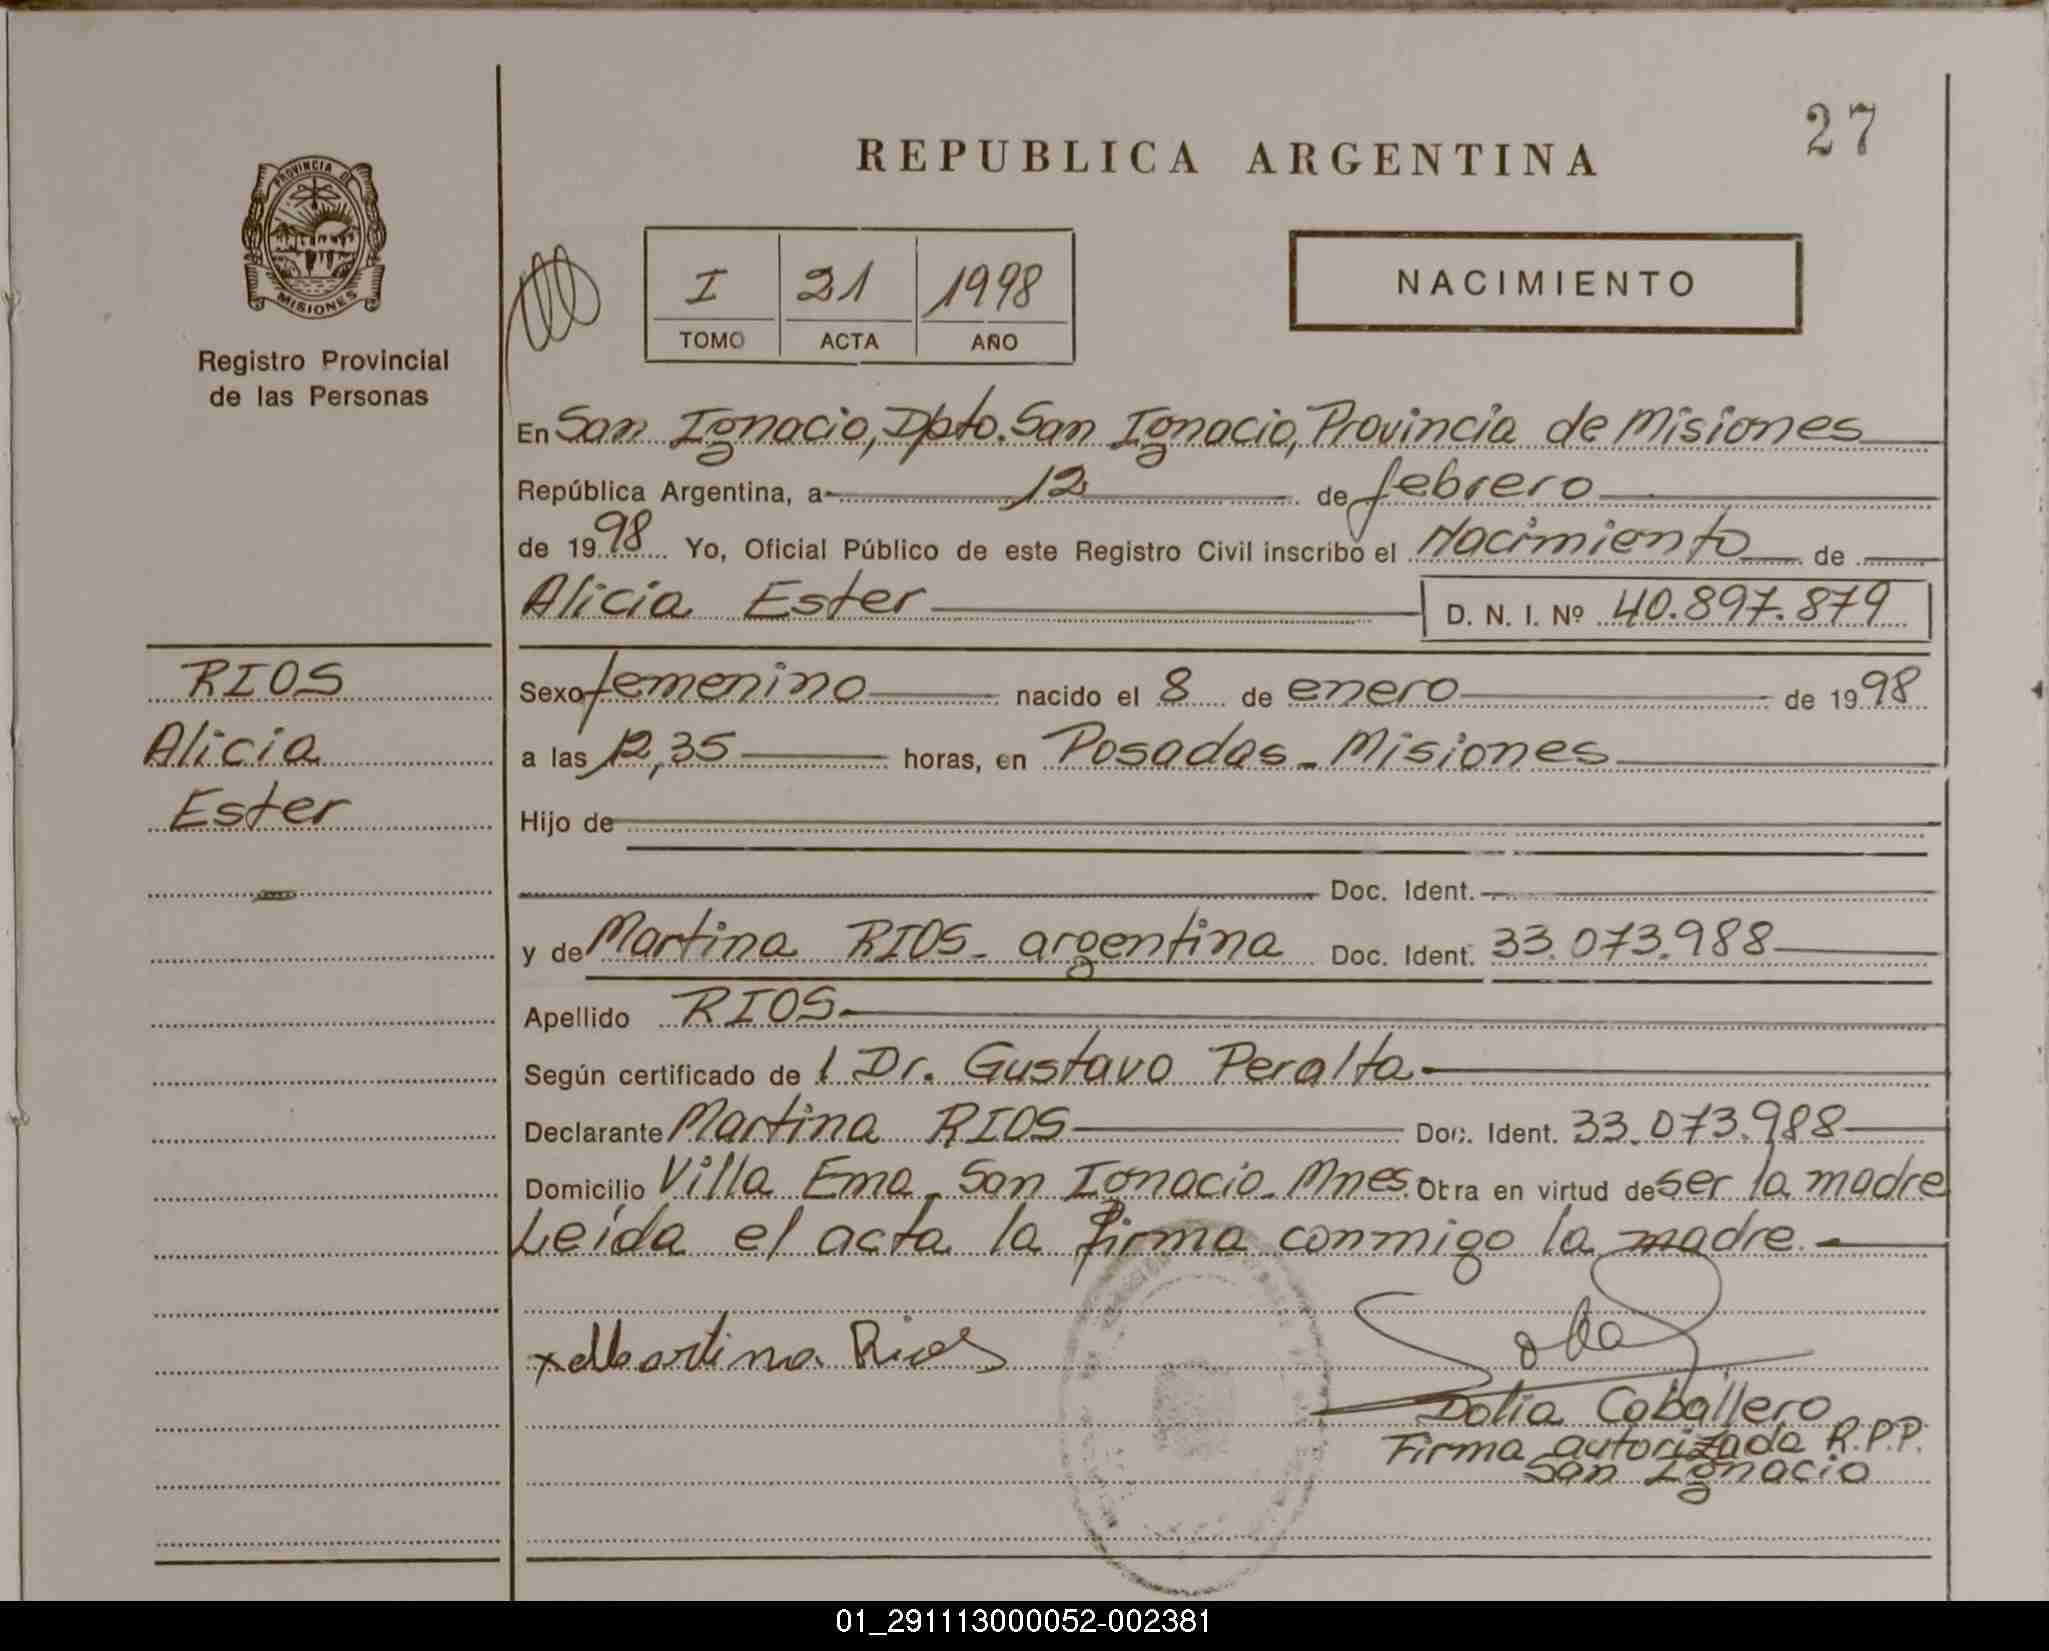 27
REPUBLICA ARGENTINA
PROVINCIA D
MISIONES
Registro Provincial
de las Personas
I 21 1998
TOMO ACTA AÑO
NACIMIENTO
En San Ignacio, Dpto. San Ignacio, Provincia de Misiones
República Argentina, a 12 de febrero
de 1998 Yo, Oficial Público de este Registro Civil inscribo el Nacimiento de
Alicia Ester D. N. I. Nº 40.897.879
RIOS
Alicia
Ester
Sexo femenino nacido el 8 de enero de 1998
a las 12,35 horas, en Posadas - Misiones
Hijo de
Doc. Ident.
y de Martina RIOS - argentina Doc. Ident. 33.073.988
Apellido RIOS
Según certificado de l Dr. Gustavo Peralta
Declarante Martina RIOS Doc. Ident. 33.073.988
Domicilio Villa Ema - San Ignacio - Mnes. Obra en virtud de ser la madre
Leida el acta la firma conmigo la madre.-
x Martina Rios
Dolia Caballero
Firma autorizada R.P.P.
San Ignacio
01_291113000052-002381